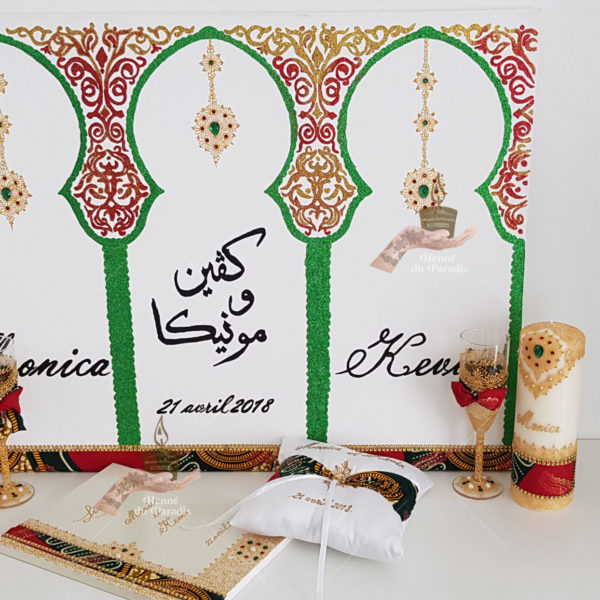 كڤين
و
مونيكا
21 avril 2018
Monica
Kev
Henné
du Paradis
Monica
21 avril 2018
Henné
du Paradis